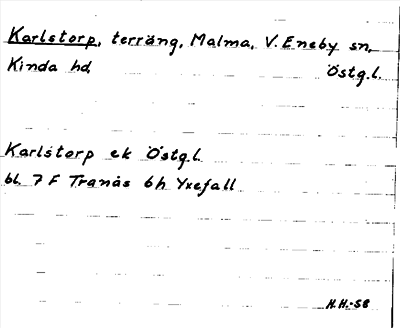 Karlstorp, terräng, Malma, V. Eneby sn,
Kinda hd, Östg.l.
Karlstorp ek Östg.l.
bl. 7 F Tranås 6h Yxefall
H.H.-58